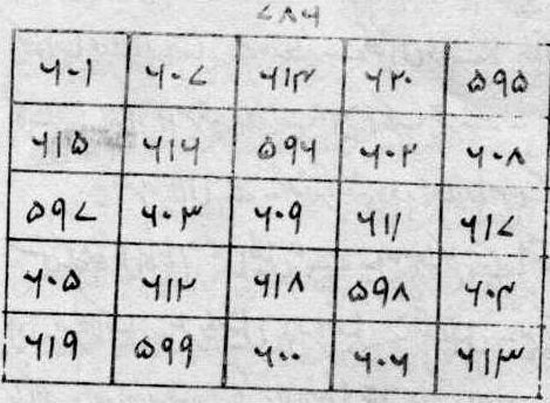 ۷۸۶
۶۰۱ ۶۰۷ ۶۱۴ ۶۲۰ ۵۹۵
۶۱۵ ۶۱۶ ۵۹۶ ۶۰۲ ۶۰۸
۵۹۷ ۶۰۳ ۶۰۹ ۶۱۱ ۶۱۷
۶۰۵ ۶۱۲ ۶۱۸ ۵۹۸ ۶۰۴
۶۱۹ ۵۹۹ ۶۰۰ ۶۰۶ ۶۱۳